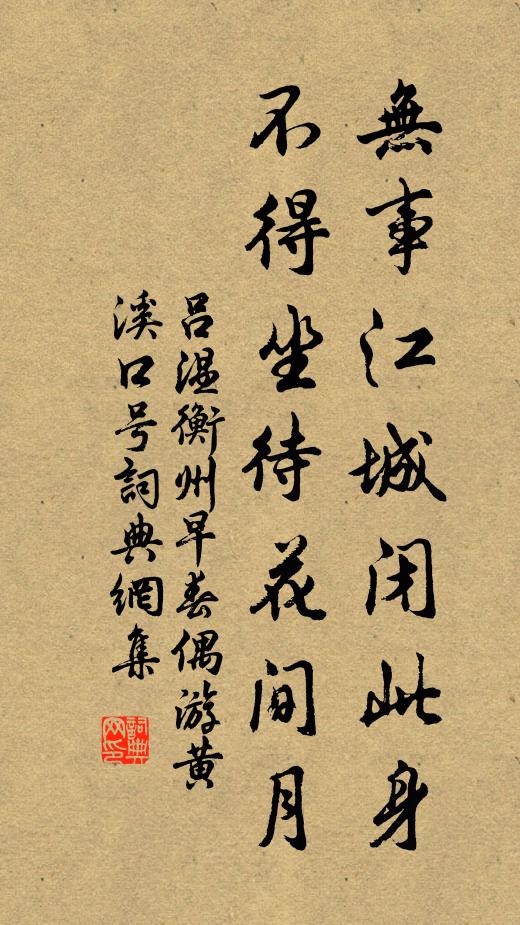 無事江城闭此身
不得坐待花间月
吕温衡州早春偶游黄
溪口号詞典網集
詞典
网印